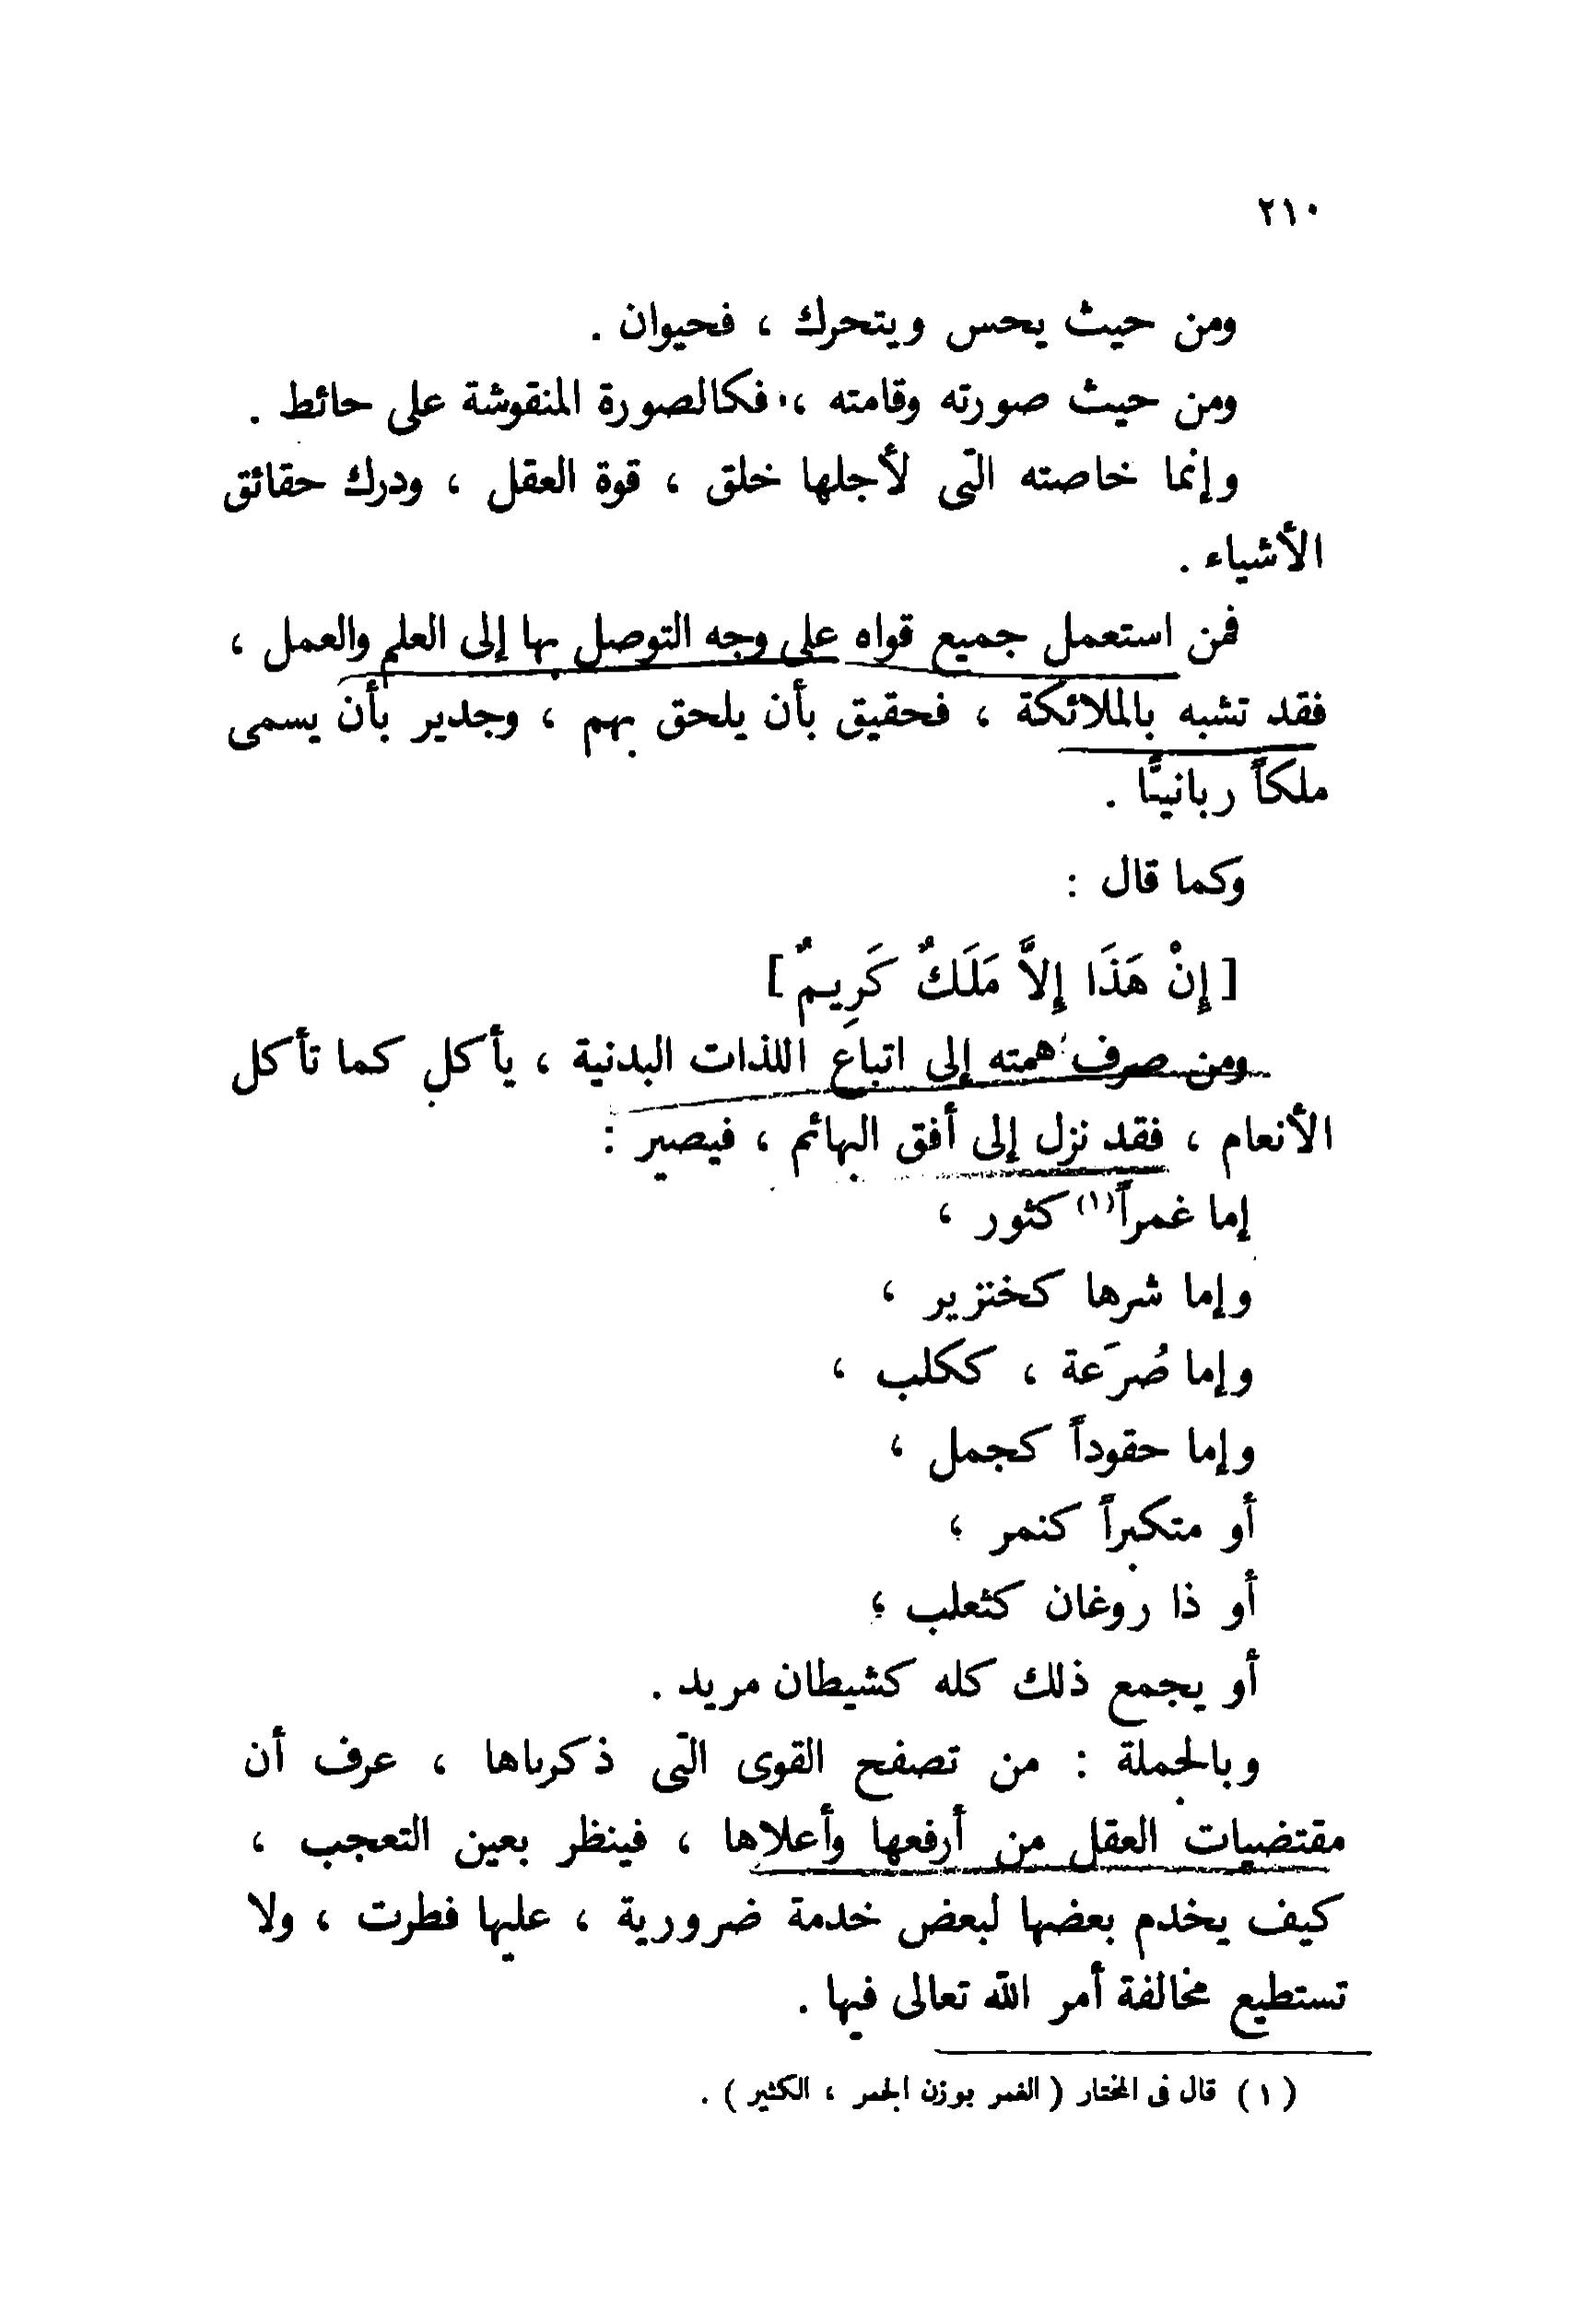 ٢١٠
ومن حيث يحس ويتحرك ، فحيوان .
ومن حيث صورته وقامته ، فكالصورة المنقوشة على حائط .
وإنما خاصته التى لأجلها خلق ، قوة العقل ، ودرك حقائق
الأشياء .
فمن استعمل جميع قواه على وجه التوصل بها إلى العلم والعمل ،
فقد تشبه بالملائكة ، فحقيق بأن يلحق بهم ، وجدير بأن يسمى
ملكاً ربانيًّا .
وكما قال :
[ إِنْ هَذَا إِلاَّ مَلَكٌ كَرِيمٌ ]
ومن صرف همته إلى اتباع اللذات البدنية ، يأكل كما تأكل
الأنعام ، فقد نزل إلى أفق البهائم ، فيصير :
إما غمراً (١) كثور ،
وإما شرها كخنزير ،
وإما ضُرَعة ، ككلب ،
وإما حقوداً كجمل ،
أو متكبراً كنمر ؛
أو ذا روغان كثعلب ؛
أو يجمع ذلك كله كشيطان مريد .
وبالجملة : من تصفح القوى التى ذكرناها ، عرف أن
مقتضيات العقل من أرفعها وأعلاها ، فينظر بعين التعجب ،
كيف يخدم بعضها لبعض خدمة ضرورية ، عليها فطرت ، ولا
تستطيع مخالفة أمر الله تعالى فيها .
( ١ ) قال فى المختار ( الغمر بوزن الجمر ، الكثير ) .